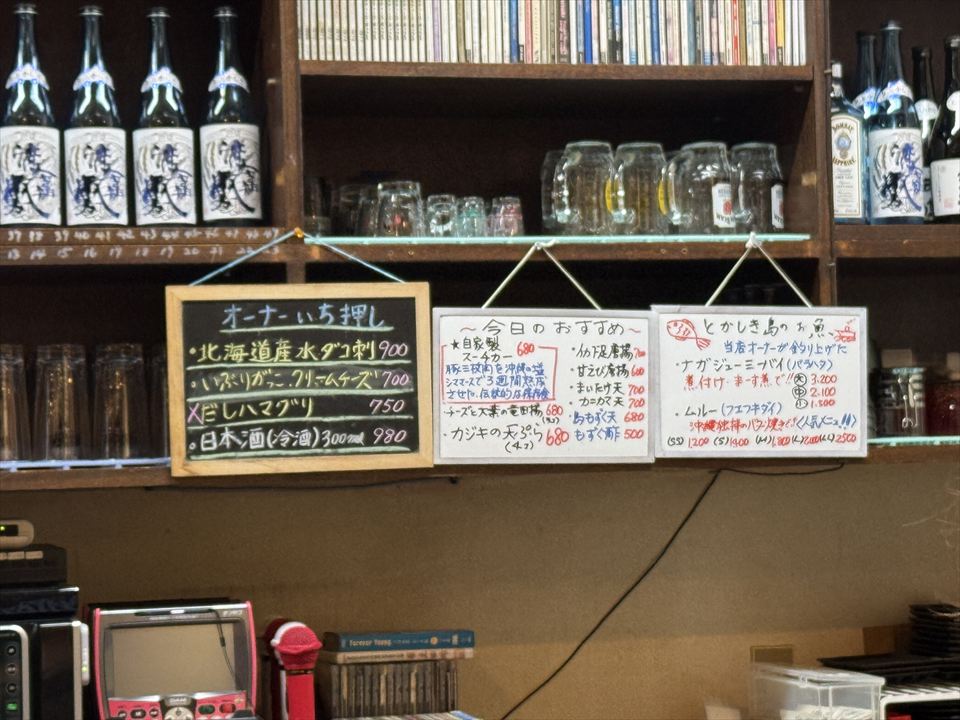 オーナーいち押し
・北海道産水ダコ刺 900
・いぶりがっこ.クリームチーズ 700
×だしハマグリ 750
・日本酒(冷酒)300ml 980
~今日のおすすめ~
★自家製
スーチカー 680
豚三枚肉を沖縄の塩
シママースで3週間熟成
させた、伝統的な保存食
・チーズと大葉の竜田揚 680
・カジキの天ぷら 680
(4コ)
・イカ下足唐揚 700
・甘えび唐揚 600
・まいたけ天 700
・カニカマ天 700
・島もずく天 680
・もずく酢 500
とかしき島のお魚
当店オーナーが釣り上げた
・ナガジューミーバイ(バラハタ)
煮付け・まーす煮で!! (大) 3.200
(中) 2.100
(小) 1.500
・ムルー(フエフキダイ)
沖縄独特のバター焼きで!〈人気メニュー!!〉
(SS) 1200 (S) 1400 (M) 1,800 (L) (LL) 2500
BOMBAY
SAPPHIRE
37 38 39 40 41 42 43 44 45 46 47
13 14 15 16 17 18 19 20 21 22 23
Forever Young